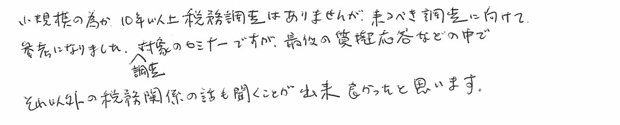 小規模の為か10年以上税務調査はありませんが、来るべき調査に向けて
参考になりました。調査対象のセミナーですが、最後の質疑応答などの中で
それ以外の税務関係の話も聞くことが出来良かったと思います。